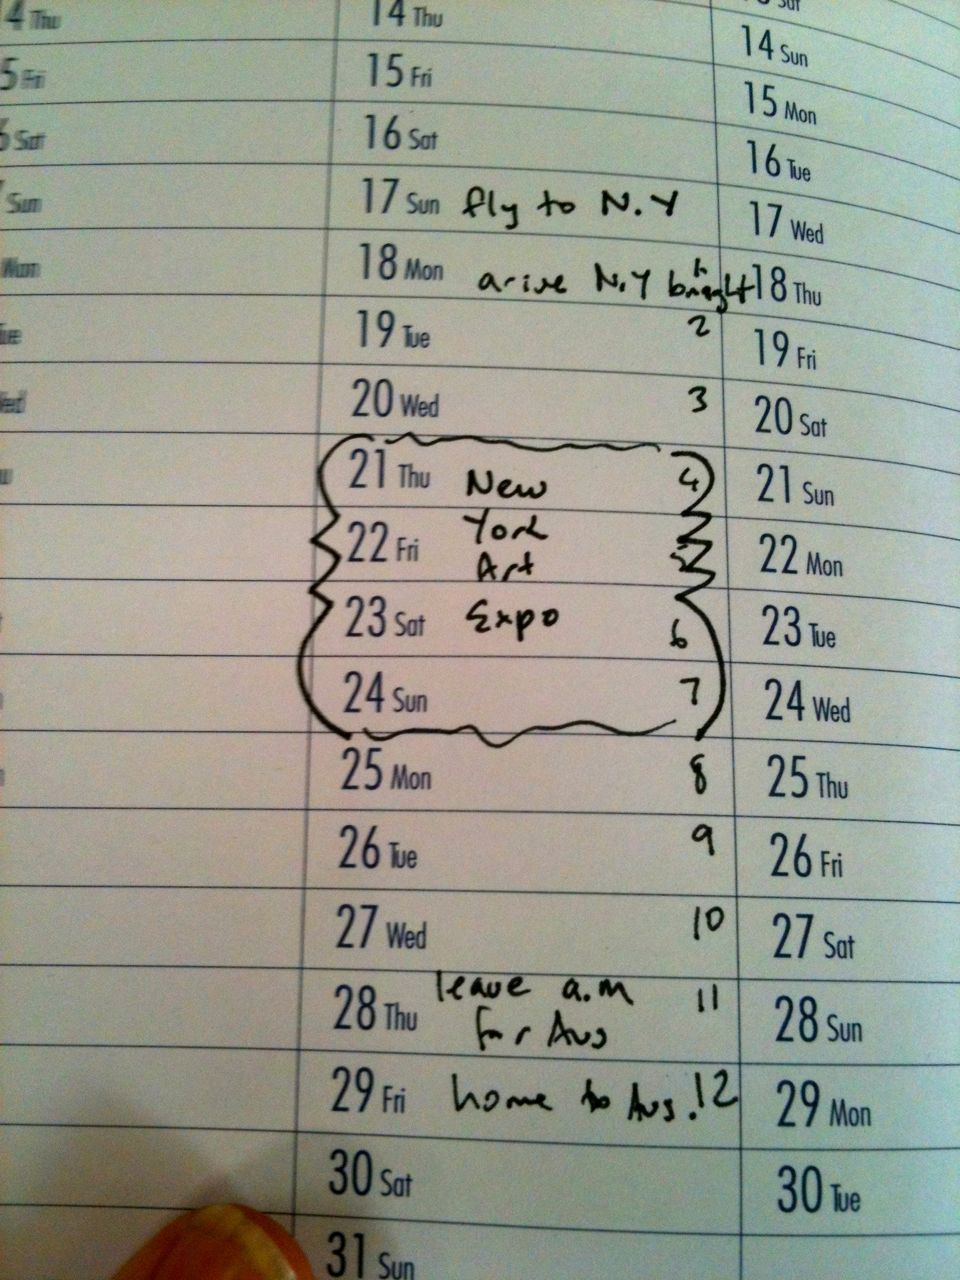 4 Thu
5 Fri
6 Sat
7 Sun
Mon
Tue
Wed
14 Thu
15 Fri
16 Sat
17 Sun fly to N.Y
18 Mon arive N.Y
19 Tue 2
20 Wed 3
21 Thu New 4
York
22 Fri 5
Art
23 Sat Expo 6
24 Sun 7
25 Mon 8
26 Tue 9
27 Wed 10
leave a.m
28 Thu 11
for Aus
29 Fri home to Aus. 12
30 Sat
31 Sun
Sat
14 Sun
15 Mon
16 Tue
17 Wed
18 Thu
19 Fri
20 Sat
21 Sun
22 Mon
23 Tue
24 Wed
25 Thu
26 Fri
27 Sat
28 Sun
29 Mon
30 Tue